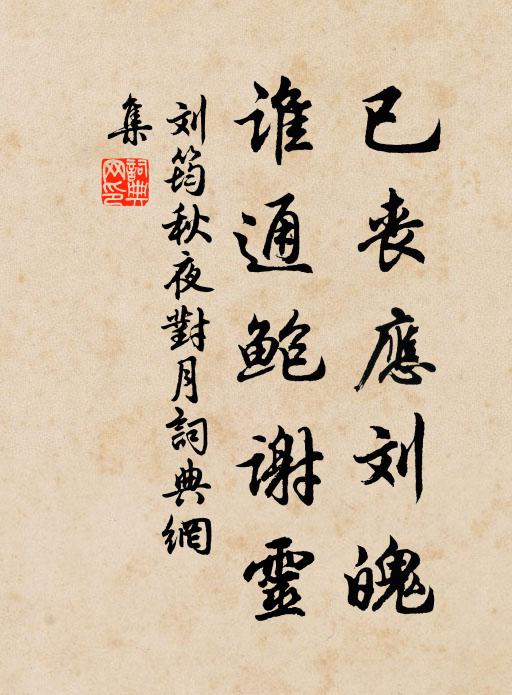 已丧應刘魄
谁通鲍谢靈
刘筠秋夜對月詞典網
集
詞典网印